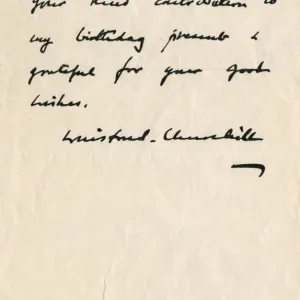 your kind contribution to
my birthday present &
grateful for your good
wishes.
Winston S. Churchill